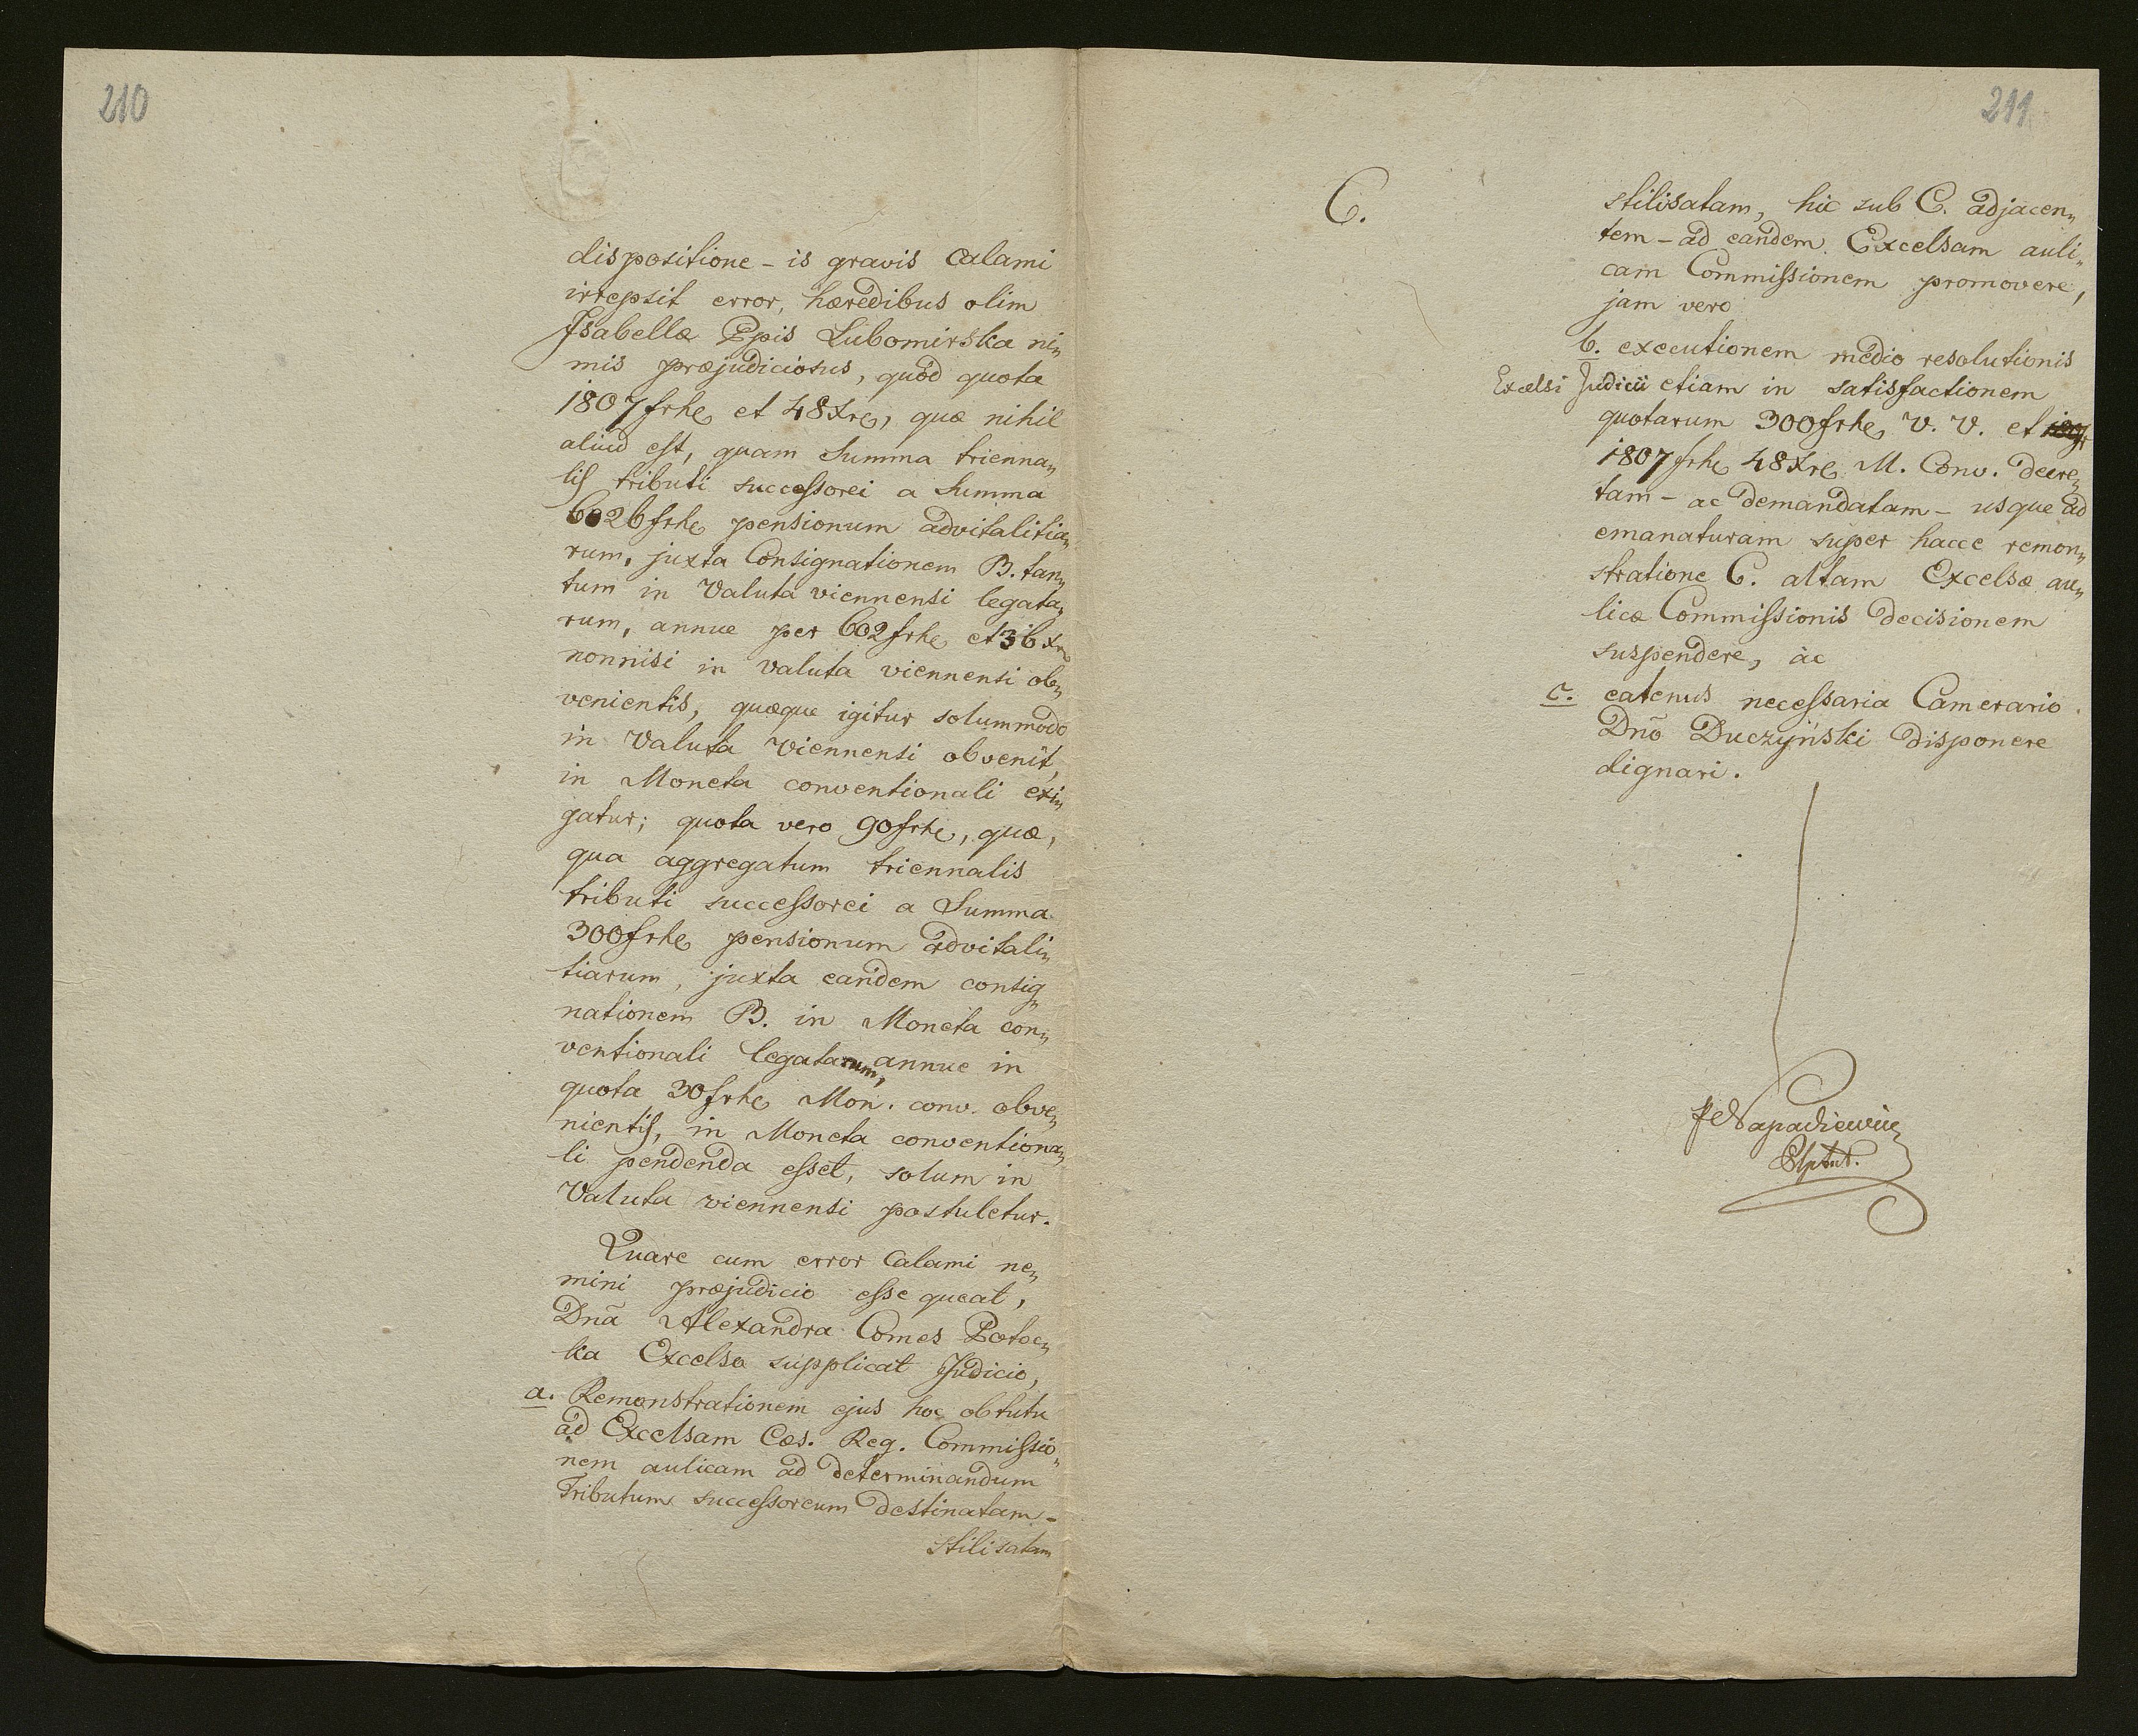 210
dispositione - is gravis calami
irrepsit error, hæredibus olim
Isabellæ Ppis Lubomirska ni„
mis præjudiciosus, quod quota
1807 frhe et 48 Xre, quæ nihil
aliud est, quam Summa trienna„
lis tributi successorei a Summa
6026 frhe pensionum advitalitia„
rum, juxta Consignationem B. tan„
tum in Valuta viennensi legata„
rum, annue per 602 frhe et 36 Xre
nonnisi in valuta viennensi ob„
venientis, quæque igitur solummodo
in Valuta viennensi obvenit,
in Moneta conventionali exi„
gatur; quota vero 90 frhe, quæ,
qua aggregatum triennalis
tributi successorei a Summa
300 frhe pensionum advitali„
tiarum, juxta eandem consig„
nationem B. in Moneta con„
ventionali legatarum, annue in
quota 30 frhe Mon. conv. obve„
nientis, in Moneta conventiona„
li pendenda esset, solum in
Valuta viennensi postuletur.
Quare cum error Calami ne„
mini præjudicio esse queat,
Dnã Alexandra Comes Potoc„
ka Excelso supplicat Judicio,
a. Remonstrationem ejus hoc obtutu
ad Excelsam Cæs. Reg. Commissio„
nem aulicam ad determinandum
Tributum successoreum destinatam -
stilisatam
211
C.
stilisatam, hic sub C. adjacen„
tem - ad eandem Excelsam auli„
cam Commissionem promovere,
jam vero
b. executionem medio resolutionis
Excelsi Judicii etiam in satisfactionem
quotarum 300 frhe V. V. et
1807 frhe 48 Xre M. Conv. decre„
tam - ac demandatam - usque ad
emanaturam super hacce remon„
stratione C. altam Excelsæ au„
licæ Commissionis decisionem
suspendere, ac
c. eatenus necessaria Camerario
Dnõ Duczyński disponere
dignari.